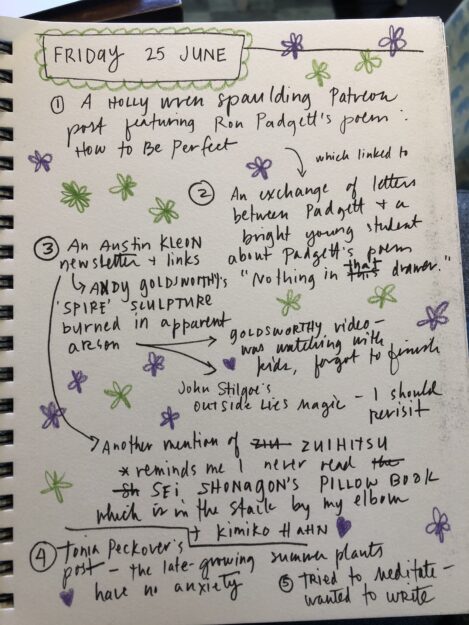 FRIDAY 25 JUNE
① A HOLLY wren Spaulding Patreon
post featuring Ron Padgett's poem:
How to Be Perfect
which linked to
② An exchange of letters
between Padgett + a
bright young student
about Padgett's poem
"Nothing in this that drawer."
③ An Austin KLEON
newsletter + links
ANDY GOLDSWORTHY'S
'SPIRE' SCULPTURE
burned in apparent
arson
GOLDSWORTHY video –
was watching with
kids, forgot to finish
John Stilgoe's
Outside Lies Magic – I should
revisit
Another mention of ZUI ZUIHITSU
* reminds me I never read the
Sh SEI SHONAGON'S PILLOW BOOK
which is in the stack by my elbow
+ KIMIKO HAHN
④ Tonia Peckover's
post – the late-growing summer plants
have no anxiety
⑤ Tried to meditate –
wanted to write